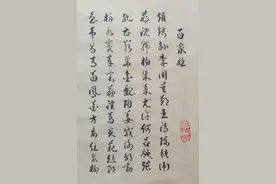 百家姓
趙錢孫李周吳鄭王馮陳褚衛
蔣沈韓楊朱秦尤許何呂施張
孔曹嚴華金魏陶姜戚謝鄒喻
柏水竇章雲蘇潘葛奚范彭郎
魯韋昌馬苗鳳花方俞任袁柳